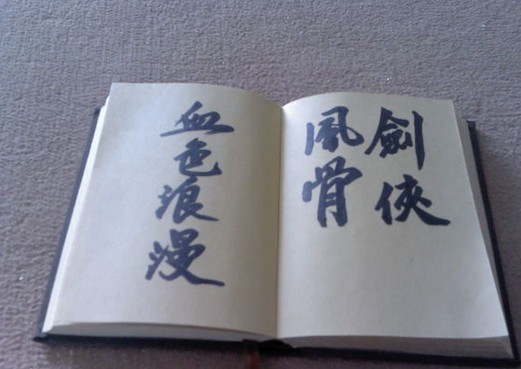 劍俠
風骨
血色浪漫